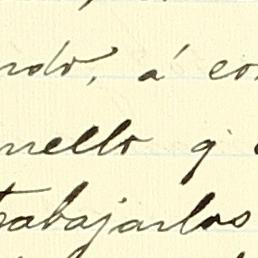 ndo, á co
nello q'
trabajarlos